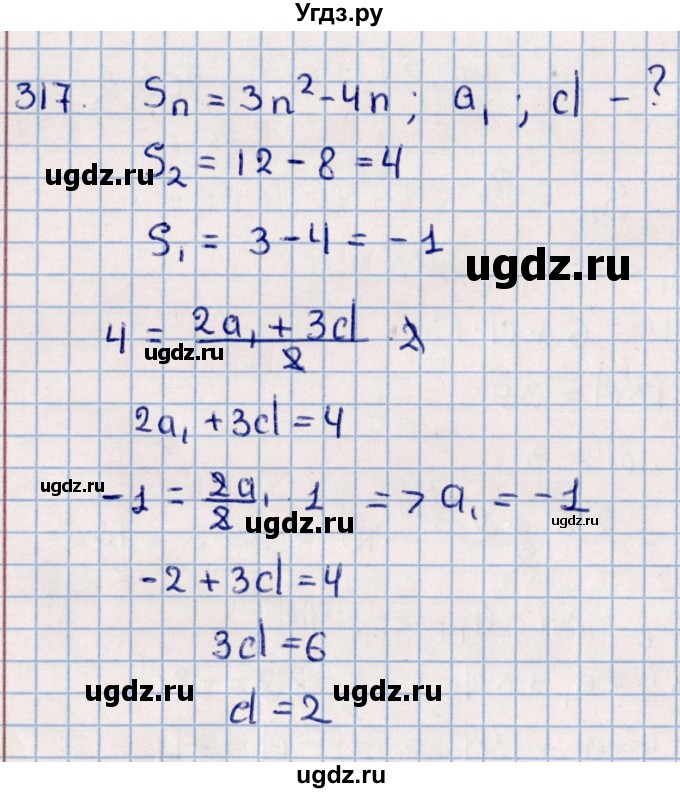 Угдз.ру
317. Sn = 3n² - 4n; a₁; d - ?
S₂ = 12 - 8 = 4
ugdz.ru
S₁ = 3 - 4 = -1
ugdz.ru
4 = (2a₁ + 3d)/2 · 2
ugdz.ru
2a₁ + 3d = 4
ugdz.ru
-1 = 2a₁/2 · 1 => a₁ = -1
ugdz.ru
ugdz.ru
-2 + 3d = 4
3d = 6
ugdz.ru
ugdz.ru
d = 2
ugdz.ru